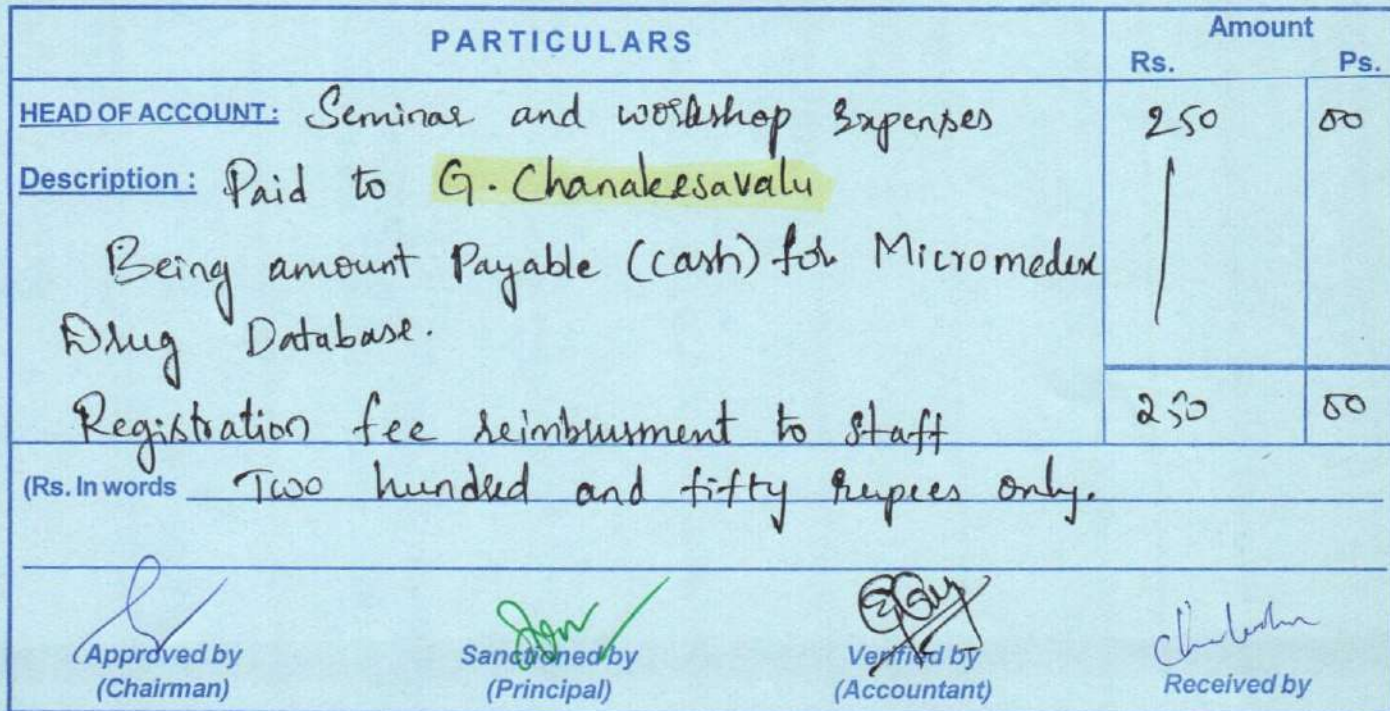 PARTICULARS Amount
Rs. Ps.
HEAD OF ACCOUNT: Seminar and workshop Expenses 250 00
Description: Paid to G. Chanakesavalu
Being amount Payable (cash) for Micromedex
Drug Database.
Registration fee reimbrusment to staff 250 00
(Rs. In words Two hundred and fifty rupees only.
Approved by Sanctioned by Verified by Received by
(Chairman) (Principal) (Accountant)